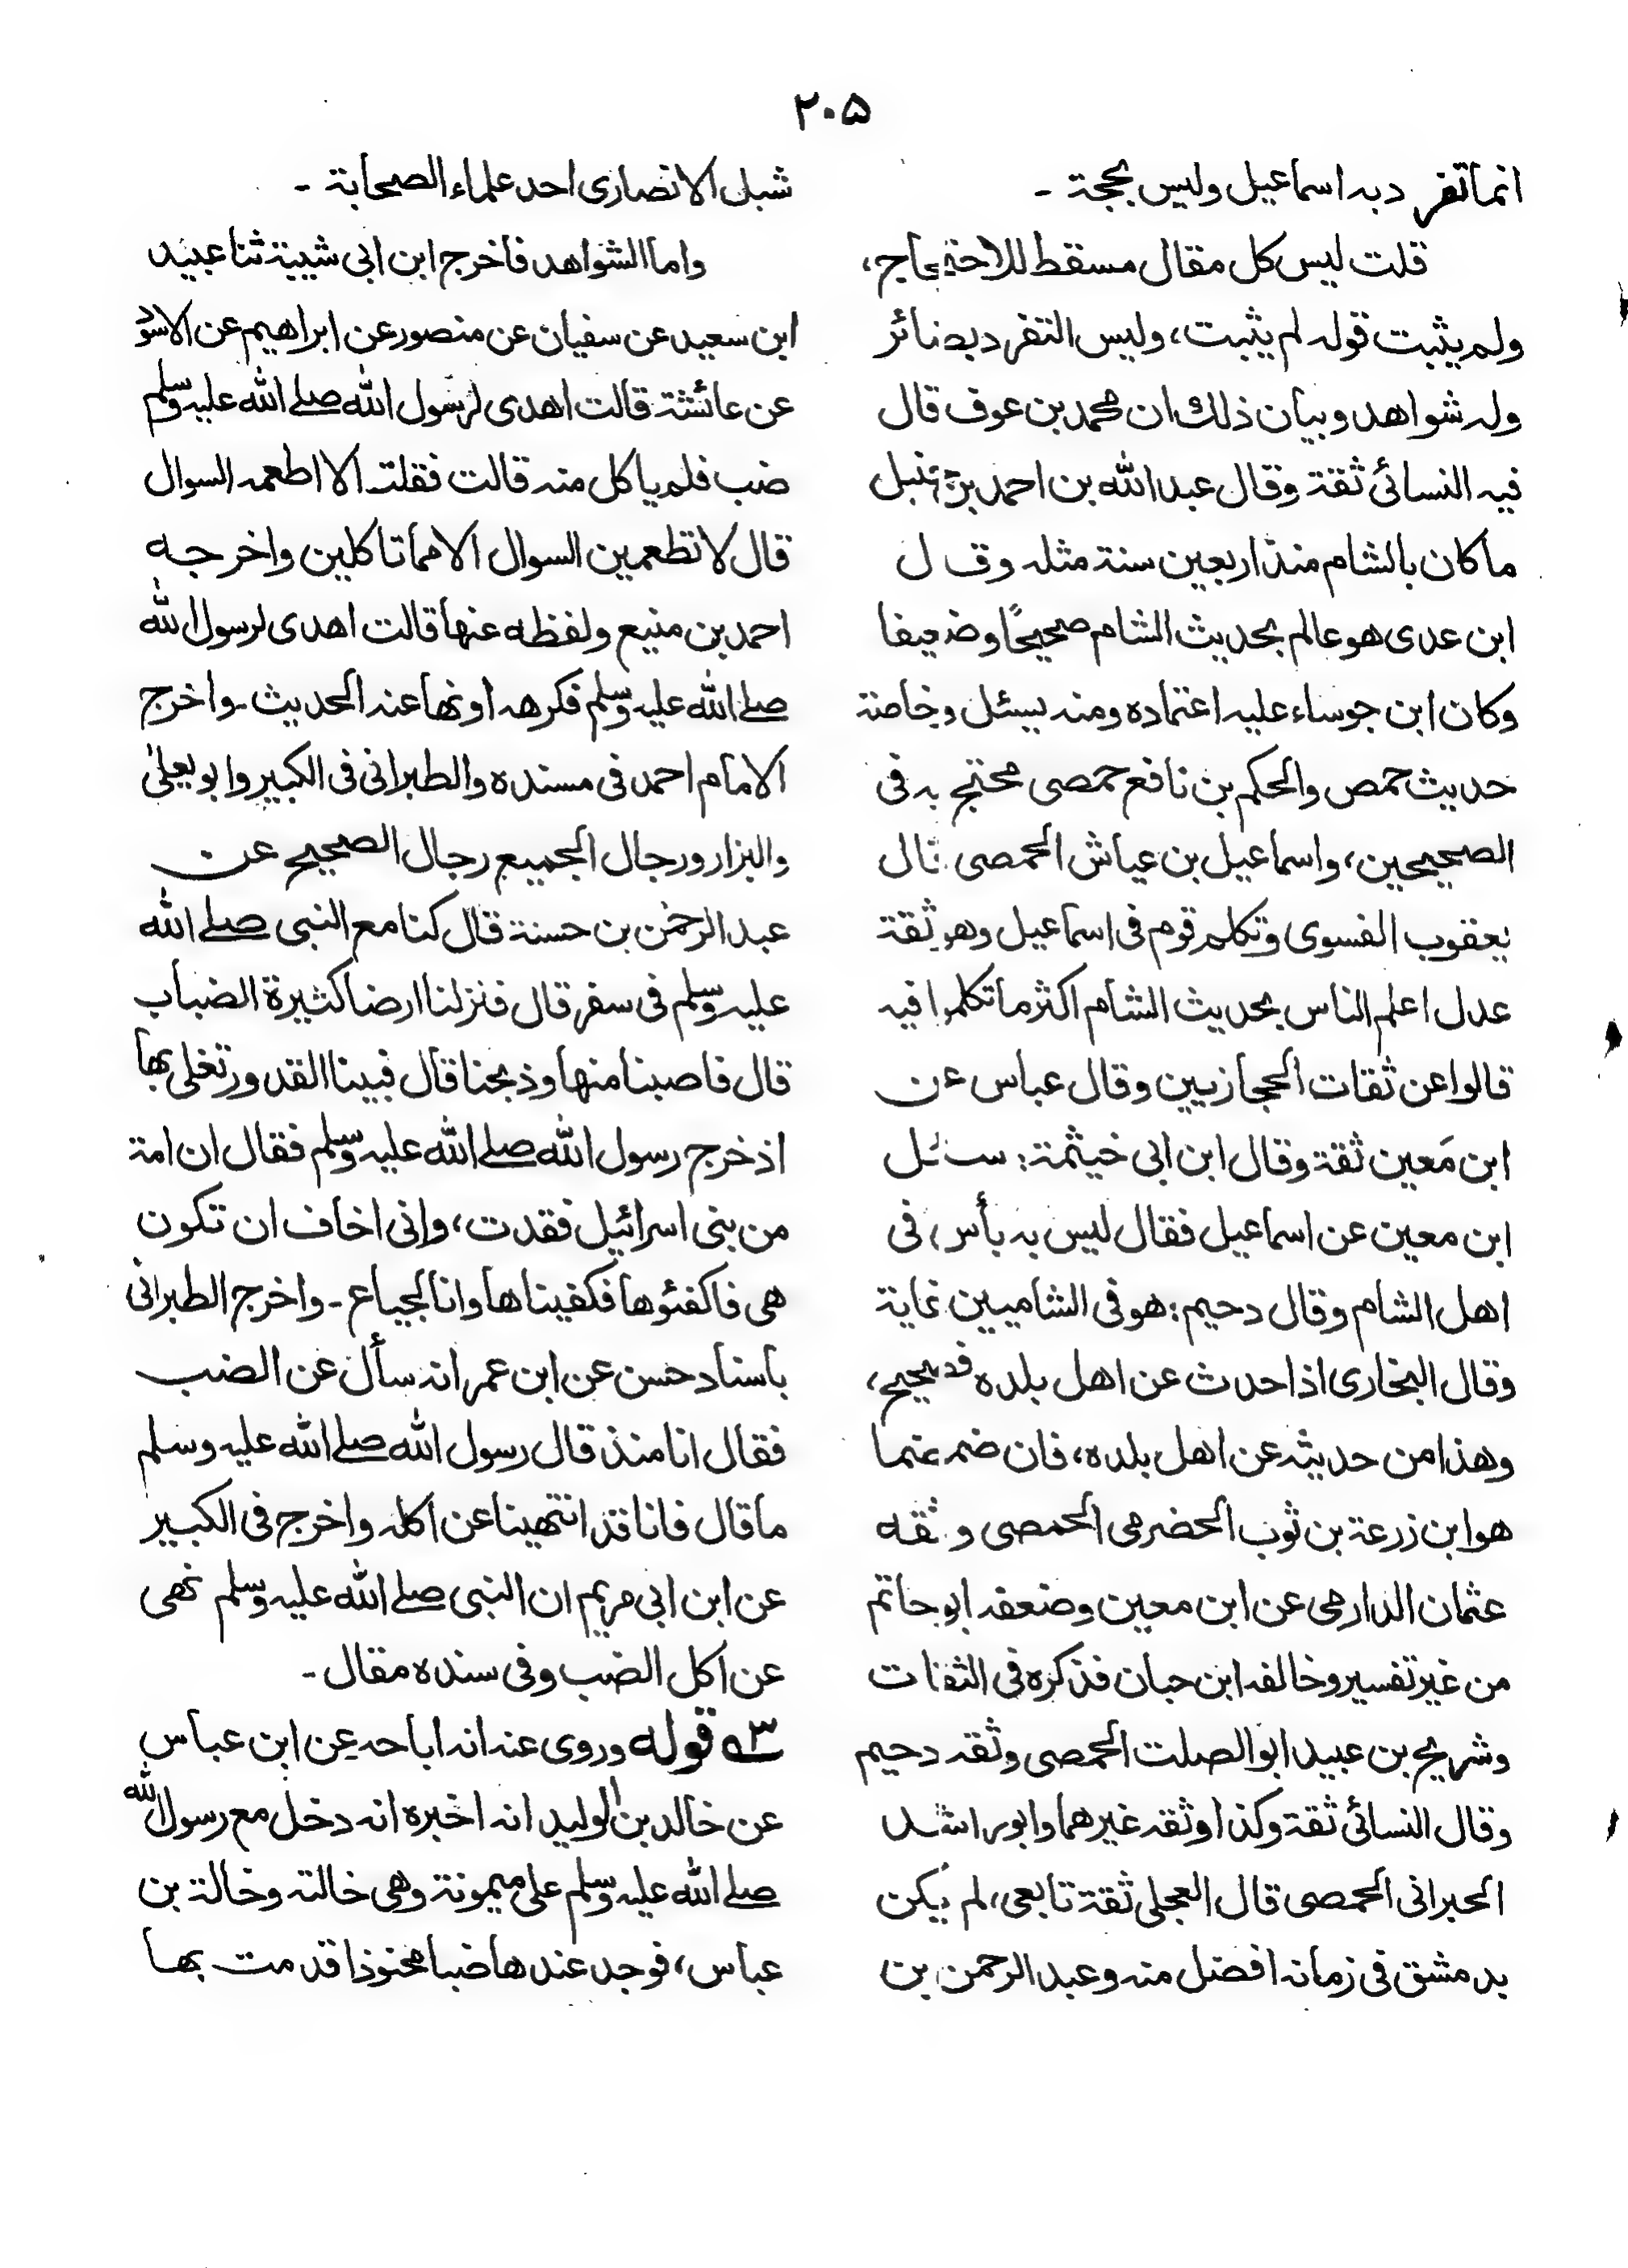 ٢٠٥
انما تفرد به اسماعيل وليس بحجة -
قلت ليس كل مقال مسقط للاحتجاج،
ولم يثبت قوله لم يثبت، وليس التفرد بضائر
وله شواهد وبيان ذلك ان محمد بن عوف قال
فيه النسائى ثقة وقال عبد الله بن احمد بن حنبل
ما كان بالشام منذ اربعين سنة مثله وقال
ابن عدى هو عالم بحديث الشام صحيحًا وضعيفا
وكان ابن جوساء عليه اعتماده ومنه يسئل وخاصة
حديث حمص والحكم بن نافع حمصى محتج به فى
الصحيحين، واسماعيل بن عياش الحمصى قال
يعقوب الفسوى وتكلم قوم فى اسماعيل وهو ثقة
عدل اعلم الناس بحديث الشام اكثر ما تكلموا فيه
قالوا عن ثقات الحجازيين وقال عباس عن
ابن مَعين ثقة وقال ابن ابى خيثمة: سئل
ابن معين عن اسماعيل فقال ليس به بأس، فى
اهل الشام وقال دحيم: هو فى الشاميين غاية
وقال البخارى اذا حدث عن اهل بلده فصحيح،
وهذا من حديثه عن اهل بلده، فان ضمضما
هو ابن زرعة بن ثوب الحضرمى الحمصى وثقه
عثمان الدارمى عن ابن معين وضعفه ابو حاتم
من غير تفسير وخالفه ابن حبان فذكره فى الثقات
وشريح بن عبيد ابو الصلت الحمصى وثقه دحيم
وقال النسائى ثقة وكذا وثقه غيرهما وابو راشد
الحبرانى الحمصى قال العجلى ثقة تابعى، لم يكن
بدمشق فى زمانه افضل منه وعبد الرحمن بن
شبل الانصارى احد علماء الصحابة -
واما الشواهد فاخرج ابن ابى شيبة ثنا عبيد
ابن سعيد عن سفيان عن منصور عن ابراهيم عن الاسود
عن عائشة قالت اهدى لرسول الله صلے الله عليه وسلم
ضب فلم ياكل منه قالت فقلت الا اطعمه السوال
قال لا تطعمين السوال الا مما تاكلين واخرجه
احمد بن منيع ولفظه عنها قالت اهدى لرسول الله
صلے الله عليه وسلم فكرهه او نهانا عنه الحديث - واخرج
الامام احمد فى مسنده والطبرانى فى الكبير وابو يعلىٰ
والبزار ورجال الجميع رجال الصحيح عن
عبد الرحمٰن بن حسنة قال كنا مع النبى صلے الله
عليه وسلم فى سفر قال فنزلنا ارضا كثيرة الضباب
قال فاصبنا منها وذبحنا قال فبينا القدور تغلى بها
اذ خرج رسول الله صلے الله عليه وسلم فقال ان امة
من بنى اسرائيل فقدت، وانى اخاف ان تكون
هى فاكفئوها فكفيناها وانا لجياع - واخرج الطبرانى
باسناد حسن عن ابن عمر انه سأل عن الضب
فقال انا منذ قال رسول الله صلے الله عليه وسلم
ما قال فانا قد انتهينا عن اكله واخرج فى الكبير
عن ابن ابى مريم ان النبى صلے الله عليه وسلم نهى
عن اكل الضب وفى سنده مقال -
٣ قوله وروى عنه انه اباحه عن ابن عباس
عن خالد بن الوليد انه اخبره انه دخل مع رسول الله
صلے الله عليه وسلم على ميمونة وهى خالته وخالة بن
عباس، فوجد عندها ضبا محنوذا قدمت بها